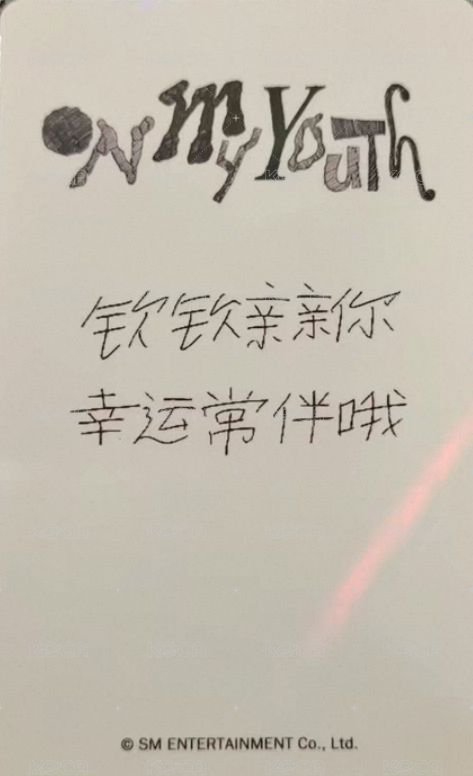 ON MY YOUTH
钦钦亲亲你
幸运常伴哦
© SM ENTERTAINMENT Co., Ltd.